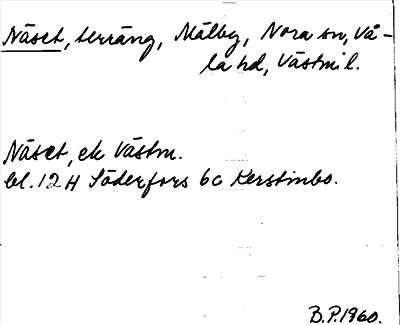 Näset, terräng, Målby, Nora sn, Vå-
la hd, Västml.
Näset, ek Västm.
bl. 12 H Söderfors 6c Kerstinbo.
B.P. 1960.